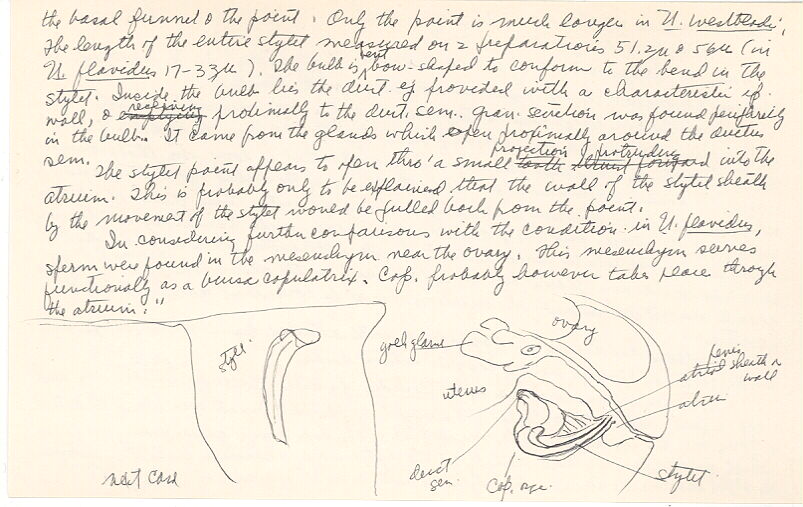 the basal funnel & the point. Only the point is much longer in U. westbladi;
the length of the entire stylet measured on 2 preparations 51.2µ & 56µ (in
U. flavidus 17-33µ). The bulb is bent bow-shaped to conform to the bend in the
stylet. Inside the bulb lies the duct. ej provided with a characteristic ep.
wall, & receiving proximally to the duct. sem. gran. secretion was found peripherily
in the bulb. It came from the glands which open proximally around the ductus
sem.
The stylet point appears to open thro' a small projection protruding into the
atrium. This is probably only to be explained that the wall of the stylet sheath
by the movement of the stylet would be pulled back from the point.
In considering further comparisons with the condition in U. flavidus,
sperm were found in the mesenchym near the ovary. This mesenchym serves
functionally as a bursa copulatrix. Cop. probably however takes place through
the atrium."
ovary
stylet
yolk gland
penis
sheath
wall
uterus
atrium
duct
sem.
Cop. opr.
stylet
next card